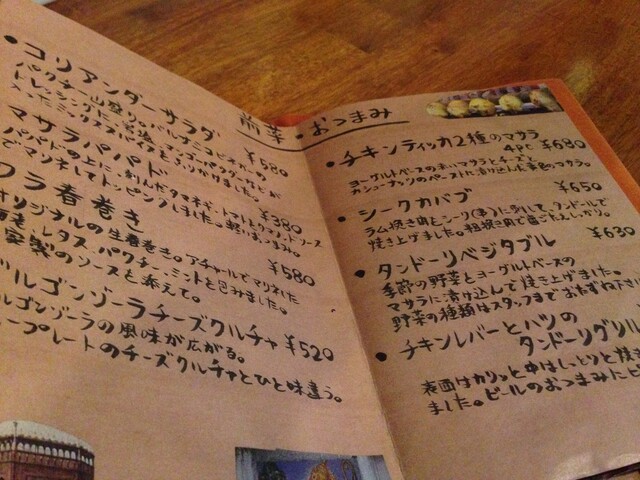 前菜・おつまみ
・コリアンダーサラダ ¥580
パクチー山盛り。バルサミコビネガーの
ドレッシングに、岩塩、マンゴパウダーなどが
入ったミックススパイスをふりかけました。
マサラパパド ¥380
パパドの上に、刻んだタマネギ・トマトとクミン、ソース
でマリネしてトッピングしました。軽いおつまみ。
ワラ春巻き ¥580
オリジナルの生春巻き。アチャールでマリネした
海老、レタス、パクチー、ミントを包みました。
自家製のソースを添えて。
ゴルゴンゾーラチーズクルチャ ¥520
ゴルゴンゾーラの風味が広がる。
プレートのチーズクルチャとひと味違う。
・チキンティッカ2種のマサラ
4PC ¥680
ヨーグルトベースの赤いマサラとチーズと
カシューナッツのペーストに漬け込んだ黄色のマサラ。
・シークカバブ ¥650
ラム挽き肉をシーク(串)に刺して、タンドールで
焼き上げました。粗挽き肉で歯ごたえしっかり。
・タンドーリベジタブル ¥630
季節の野菜とヨーグルトベースの
マサラに漬け込んで焼き上げました。
野菜の種類はスタッフまでおたずね下さい
・チキンレバーとハツの
タンドーリグリル
表面はカリッと中はしっとりと焼き
ました。ビールのおつまみにピ